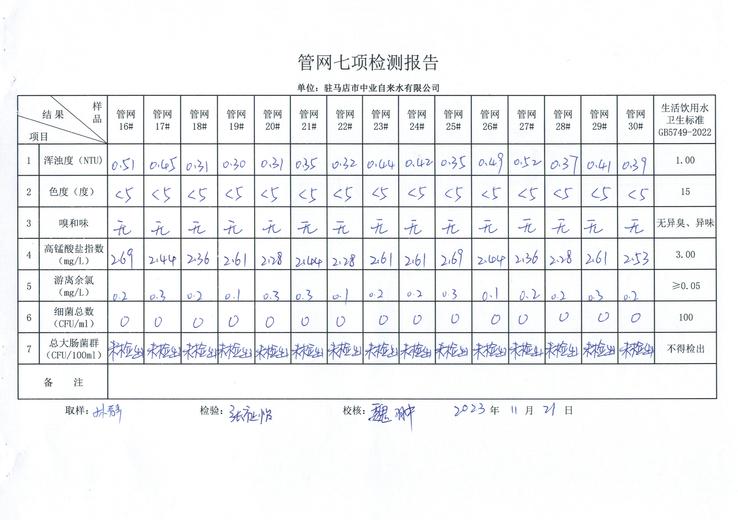 管网七项检测报告
单位：驻马店市中业自来水有限公司
结果 样品 项目 管网16# 管网17# 管网18# 管网19# 管网20# 管网21# 管网22# 管网23# 管网24# 管网25# 管网26# 管网27# 管网28# 管网29# 管网30# 生活饮用水卫生标准GB5749-2022
1 浑浊度（NTU） 0.51 0.45 0.31 0.30 0.31 0.35 0.32 0.44 0.42 0.35 0.49 0.52 0.37 0.41 0.39 1.00
2 色度（度） <5 <5 <5 <5 <5 <5 <5 <5 <5 <5 <5 <5 <5 <5 <5 15
3 嗅和味 无 无 无 无 无 无 无 无 无 无 无 无 无 无 无 无异臭、异味
4 高锰酸盐指数（mg/L） 2.69 2.44 2.36 2.61 2.28 2.44 2.28 2.61 2.61 2.69 2.44 2.36 2.28 2.61 2.53 3.00
5 游离余氯（mg/L） 0.2 0.3 0.2 0.1 0.3 0.3 0.1 0.2 0.2 0.3 0.1 0.2 0.2 0.3 0.2 ≥0.05
6 细菌总数（CFU/ml） 0 0 0 0 0 0 0 0 0 0 0 0 0 0 0 100
7 总大肠菌群（CFU/100ml） 未检出 未检出 未检出 未检出 未检出 未检出 未检出 未检出 未检出 未检出 未检出 未检出 未检出 未检出 未检出 不得检出
备 注
取样： 检验： 校核： 2023 年 11 月 21 日